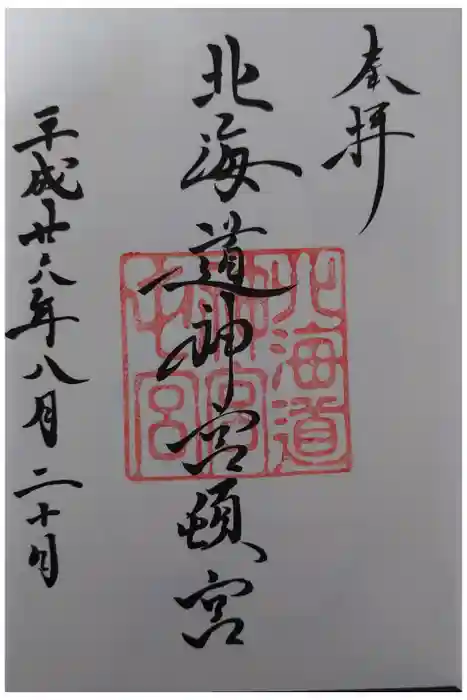 奉拝
北海道神宮頓宮
平成廿六年八月二十日
北海道
神宮
宮